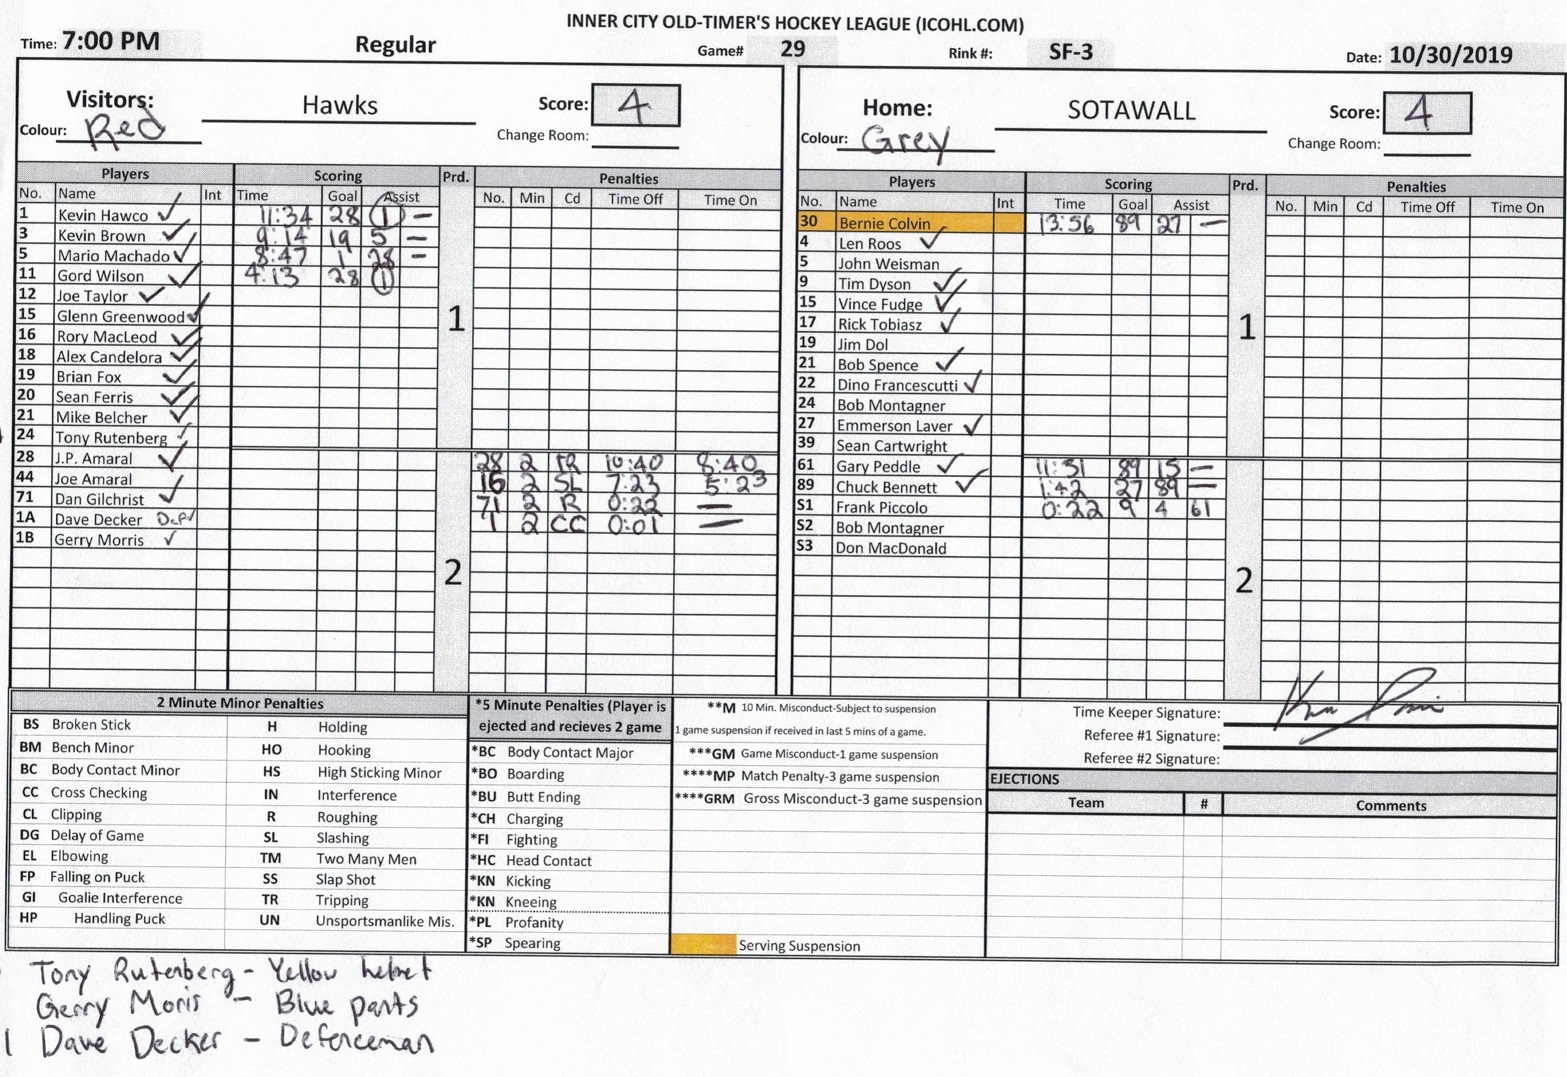 INNER CITY OLD-TIMER'S HOCKEY LEAGUE (ICOHL.COM)
Time: 7:00 PM Regular Game# 29 Rink #: SF-3 Date: 10/30/2019
Visitors: Hawks Score: 4 Home: SOTAWALL Score: 4
Colour: Red Change Room: Colour: Grey Change Room:
Players Scoring Prd. Penalties Players Scoring Prd. Penalties
No. Name Int Time Goal Assist No. Min Cd Time Off Time On No. Name Int Time Goal Assist No. Min Cd Time Off Time On
1 Kevin Hawco ✓ 11:34 28 1 — 30 Bernie Colvin 13:56 89 27 —
3 Kevin Brown ✓ 9:14 19 5 — 4 Len Roos ✓
5 Mario Machado ✓ 8:47 1 28 — 5 John Weisman
11 Gord Wilson ✓ 4:13 28 1 9 Tim Dyson ✓
12 Joe Taylor ✓ 15 Vince Fudge ✓
15 Glenn Greenwood ✓ 1 17 Rick Tobiasz ✓ 1
16 Rory MacLeod ✓ 19 Jim Dol
18 Alex Candelora ✓ 21 Bob Spence ✓
19 Brian Fox ✓ 22 Dino Francescutti ✓
20 Sean Ferris ✓ 24 Bob Montagner
21 Mike Belcher ✓ 27 Emmerson Laver ✓
24 Tony Rutenberg ✓ 39 Sean Cartwright
28 J.P. Amaral ✓ 28 2 TR 10:40 8:40 61 Gary Peddle ✓ 11:51 89 15 —
44 Joe Amaral 16 2 SL 7:23 5:23 89 Chuck Bennett ✓ 1:42 27 89 —
71 Dan Gilchrist ✓ 71 2 R 0:22 — S1 Frank Piccolo 0:22 9 4 61
1A Dave Decker Def ✓ 1 2 CC 0:01 — S2 Bob Montagner
1B Gerry Morris ✓ S3 Don MacDonald
2 2
2 Minute Minor Penalties
BS Broken Stick H Holding
BM Bench Minor HO Hooking
BC Body Contact Minor HS High Sticking Minor
CC Cross Checking IN Interference
CL Clipping R Roughing
DG Delay of Game SL Slashing
EL Elbowing TM Two Many Men
FP Falling on Puck SS Slap Shot
GI Goalie Interference TR Tripping
HP Handling Puck UN Unsportsmanlike Mis.
*5 Minute Penalties (Player is
ejected and recieves 2 game
*BC Body Contact Major
*BO Boarding
*BU Butt Ending
*CH Charging
*FI Fighting
*HC Head Contact
*KN Kicking
*KN Kneeing
*PL Profanity
*SP Spearing
**M 10 Min. Misconduct-Subject to suspension
1 game suspension if received in last 5 mins of a game.
***GM Game Misconduct-1 game suspension
****MP Match Penalty-3 game suspension
****GRM Gross Misconduct-3 game suspension
Serving Suspension
Time Keeper Signature:
Referee #1 Signature:
Referee #2 Signature:
EJECTIONS
Team # Comments
Tony Rutenberg - Yellow helmet
Gerry Moris - Blue pants
1 Dave Decker - Defenceman